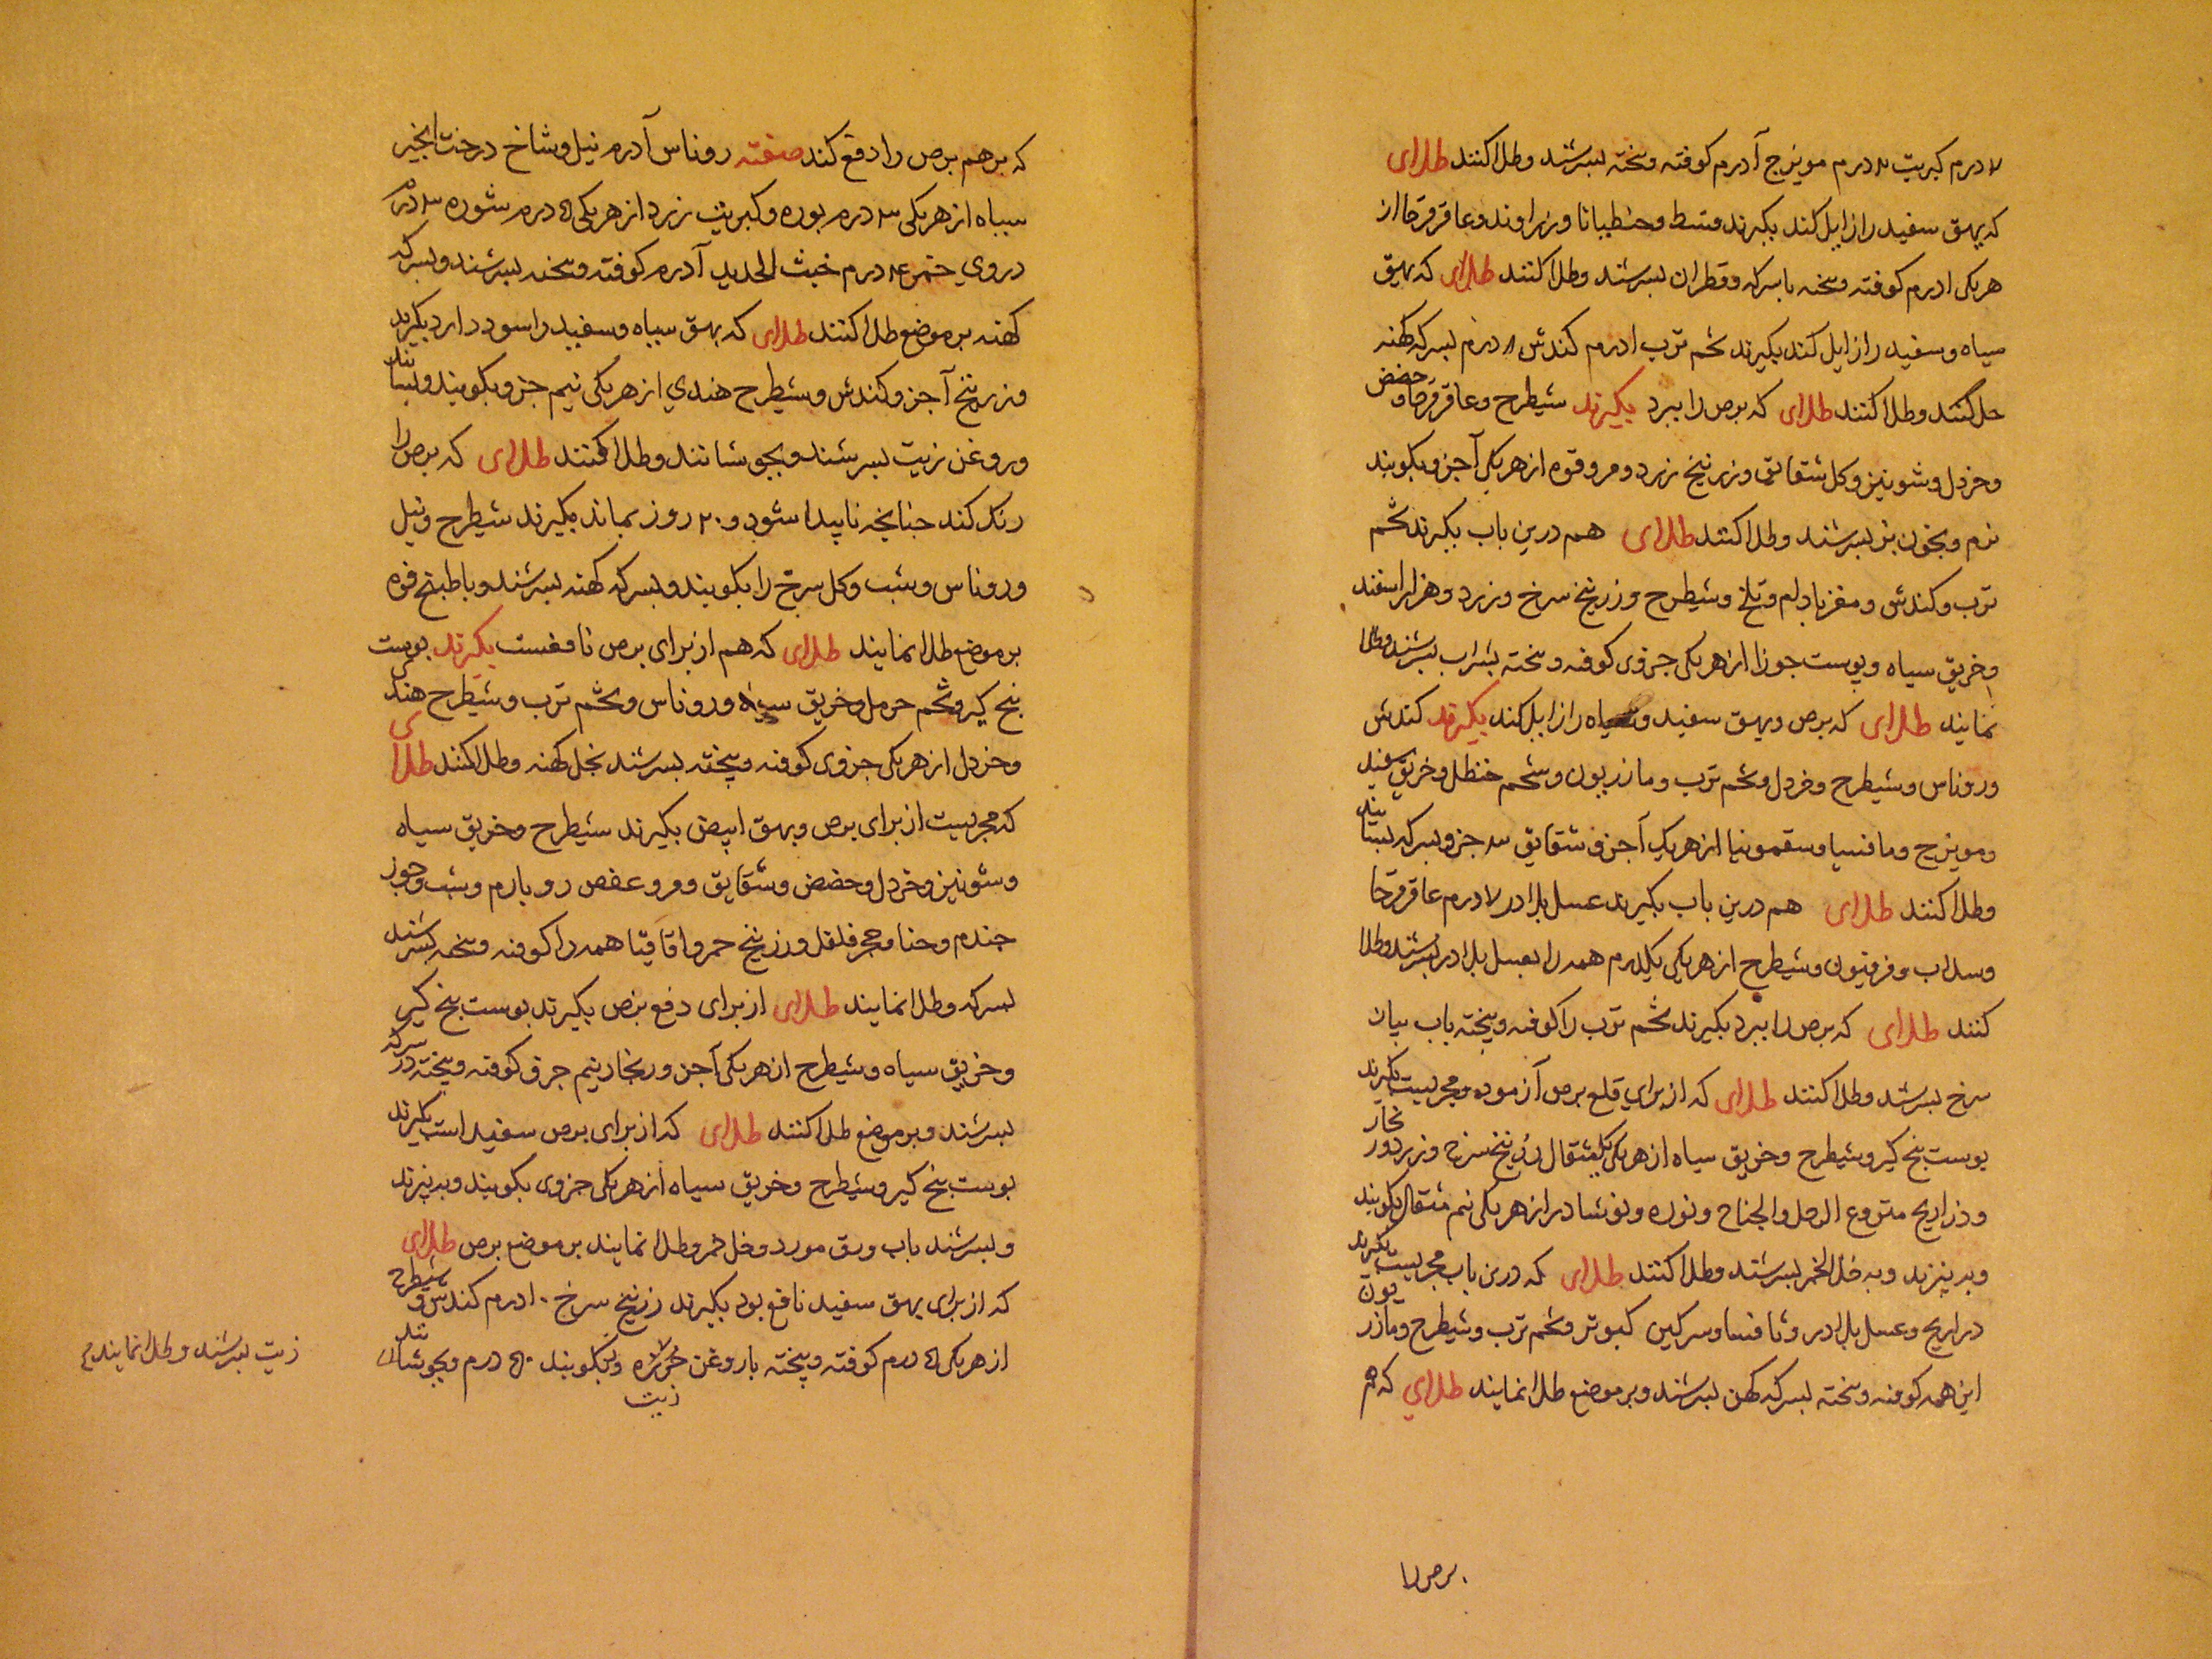 ۷ درم کبریت ۲ درم مویزج ۱ درم کوفته و پخته بسرشند و طلا کنند طلای
که بهق سفید را زایل کند بکیرند قسط و جنطیانا و زراوند و عاقرقرحا از
هر یکی ا درم کوفته و پخته با سرکه و قطران بسرشند و طلا کنند طلای که بهق
سیاه و سفید را زایل کند بکیرند تخم ترب ا درم کندش ۸ درم بسرکه کهنه
حل کنند و طلا کنند طلای که برص را ببرد بکیرند شیطرج و عاقرقرحا و حضض
و خردل و شونیز و کل شقایق و زرنیخ زرد و مر و قوه از هر یکی آ جز و بکوبند
نرم و بخون بز بسرشند و طلا کنند طلای هم درین باب بکیرند تخم
ترب و کندش و مغز بادام تلخ و شیطرج و زرنیخ سرخ و زرد و هزار اسفند
و خربق سیاه و پوست جوز از هر یکی جزوی کوفته و پخته بشراب بسرشند و طلا
نمایند طلای که برص و بهق سفید و سیاه را زایل کند بکیرند کندش
و روناس و شیطرج و خردل و تخم ترب و مازریون و شحم حنظل و خربق سفید
و مویزج و مافسیا و سقمونیا از هر یک آ جز و شقایق ۳ جز و بسرکه بسایند
و طلا کنند طلای هم درین باب بکیرند عسل بلادر ۷ درم عاقرقرحا
و سداب و فرفیون و شیطرج از هر یکی یکدرم همه را بعسل بلادر بسرشند و طلا
کنند طلای که برص را ببرد بکیرند تخم ترب را کوفته و پخته باب پیاز
سرخ بسرشند و طلا کنند طلای که از برای قلع برص آزموده و مجربست بکیرند
پوست بیخ کبر و شیطرج و خربق سیاه از هر یکی یکمثقال زرنیخ سرخ و زرد و زنجار
و ذراریح منزوع الرجل و الجناح و نوره و نوشادر از هر یکی نیم مثقال بکوبند
و به بیزند و به خل الخمر بسرشند و طلا کنند طلای که درین باب مجربست بکیرند
ذراریح و عسل بلادر و ثافسیا و سرکین کبوتر و تخم ترب و شیطرج و مازریون
این همه کوفته و پخته بسرکه کهن بسرشند و بر موضع طلا نمایند طلای که هم
برص را
که برهم برص را دفع کند صفته روناس آ درم نیل و شاخ درخت انجیر
سیاه از هر یکی ۳ درم بوره و کبریت زرد از هر یکی ۵ درم شوره ۳ درم
دروی خمر ۴ درم خبث الحدید آ درم کوفته و پخته بسرشند و بسرکه
کهنه بر موضع طلا کنند طلای که بهق سیاه و سفید را سود دارد بکیرند
و زرنیخ آ جز و کندش و شیطرج هندی از هر یکی نیم جز و بکوبند و بسایند
و روغن زیت بسرشند و بجوشانند و طلا کنند طلای که برص را
رنک کند چنانچه ناپیدا شود و ۲۰ روز بماند بکیرند شیطرج و نیل
و روناس و شب و کل سرخ را بکوبند و بسرکه کهنه بسرشند و با طبیخ فوه
بر موضع طلا نمایند طلای که هم از برای برص نافعست بکیرند پوست
بیخ کبر و تخم حرمل و خربق سیاه و روناس و تخم ترب و شیطرج هندی
و خردل از هر یکی جزوی کوفته و پخته بسرشند بخل کهنه و طلا کنند طلای
که مجربست از برای برص و بهق ابیض بکیرند شیطرج و خربق سیاه
و شونیز و خردل و حضض و شقایق و مر و عفص و شب و جوز
جندم و حنا و فلفل و زرنیخ حمر و اقاقیا همه را کوفته و پخته بسرشند
بسرکه و طلا نمایند طلای از برای دفع برص بکیرند پوست بیخ کبر
و خربق سیاه و شیطرج از هر یکی آ جز و زنجار نیم جزو کوفته و پخته در سرکه
بسرشند و بر موضع طلا کنند طلای که از برای برص سفید است بکیرند
پوست بیخ کبر و شیطرج و خربق سیاه از هر یکی جزوی بکوبند و به بیزند
و بسرشند باب ورق مورد و خل خمر و طلا نمایند بر موضع برص طلای
که از برای بهق سفید نافع بود بکیرند زرنیخ سرخ ۱۰ درم کندش و شیطرج
از هر یکی ۵ درم کوفته و پخته با روغن و بکوبند ۵۰ درم و بجوشانند
زیت
زیت بسرشند و طلا نمایند